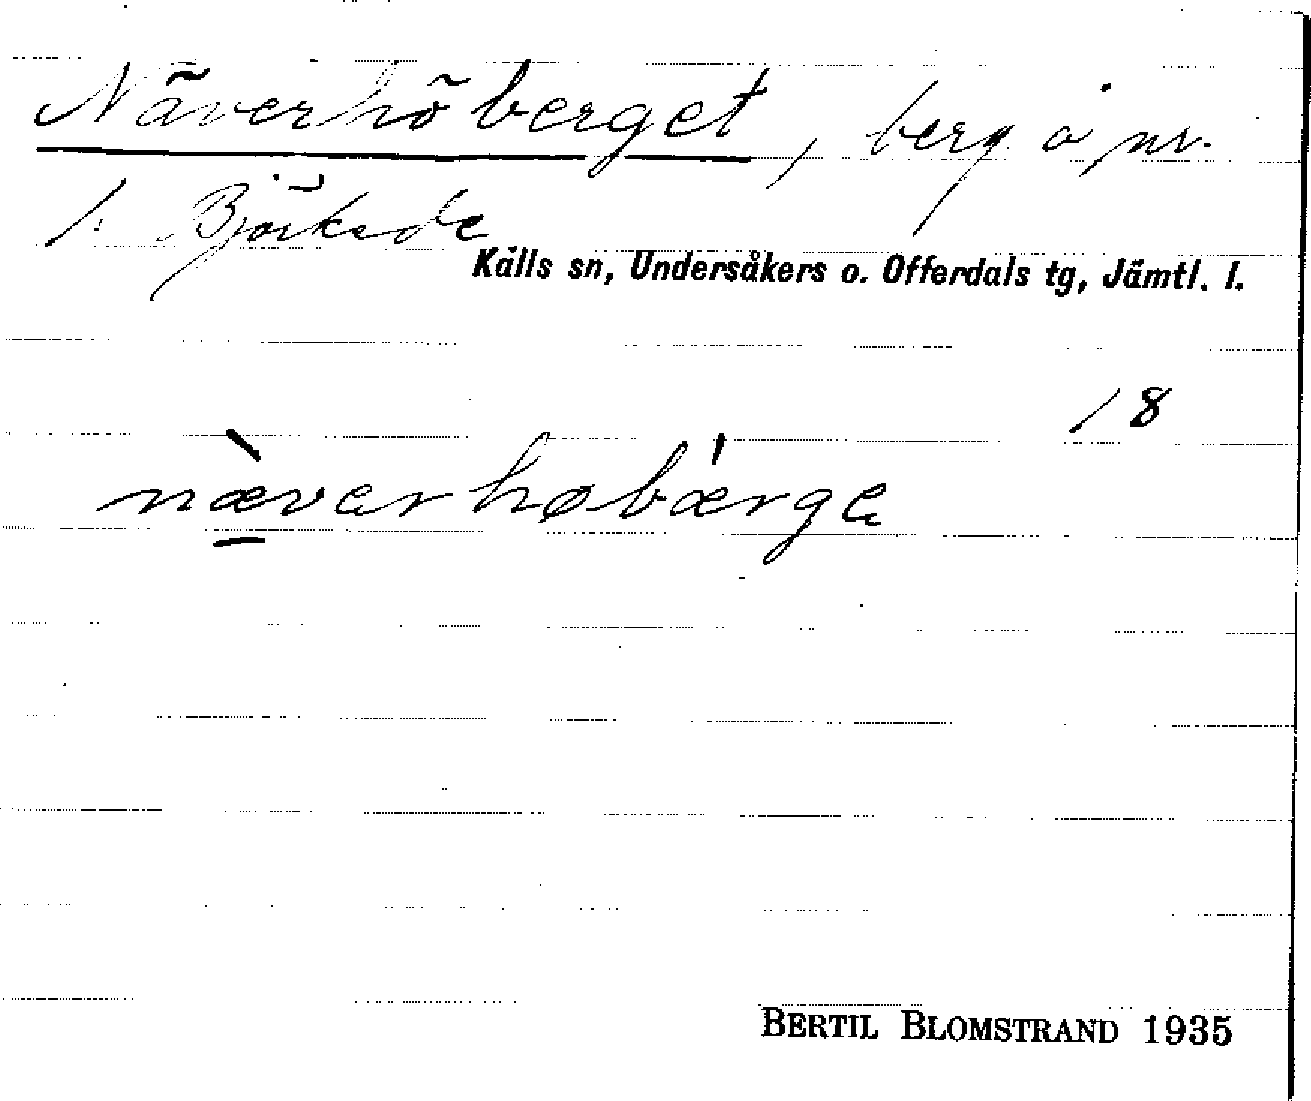 Näverhöberget, berg o nr.
1. Björksde
Källs sn, Undersåkers o. Offerdals tg, Jämtl. l.
18
næ̀verhøbǽrge
BERTIL BLOMSTRAND 1935